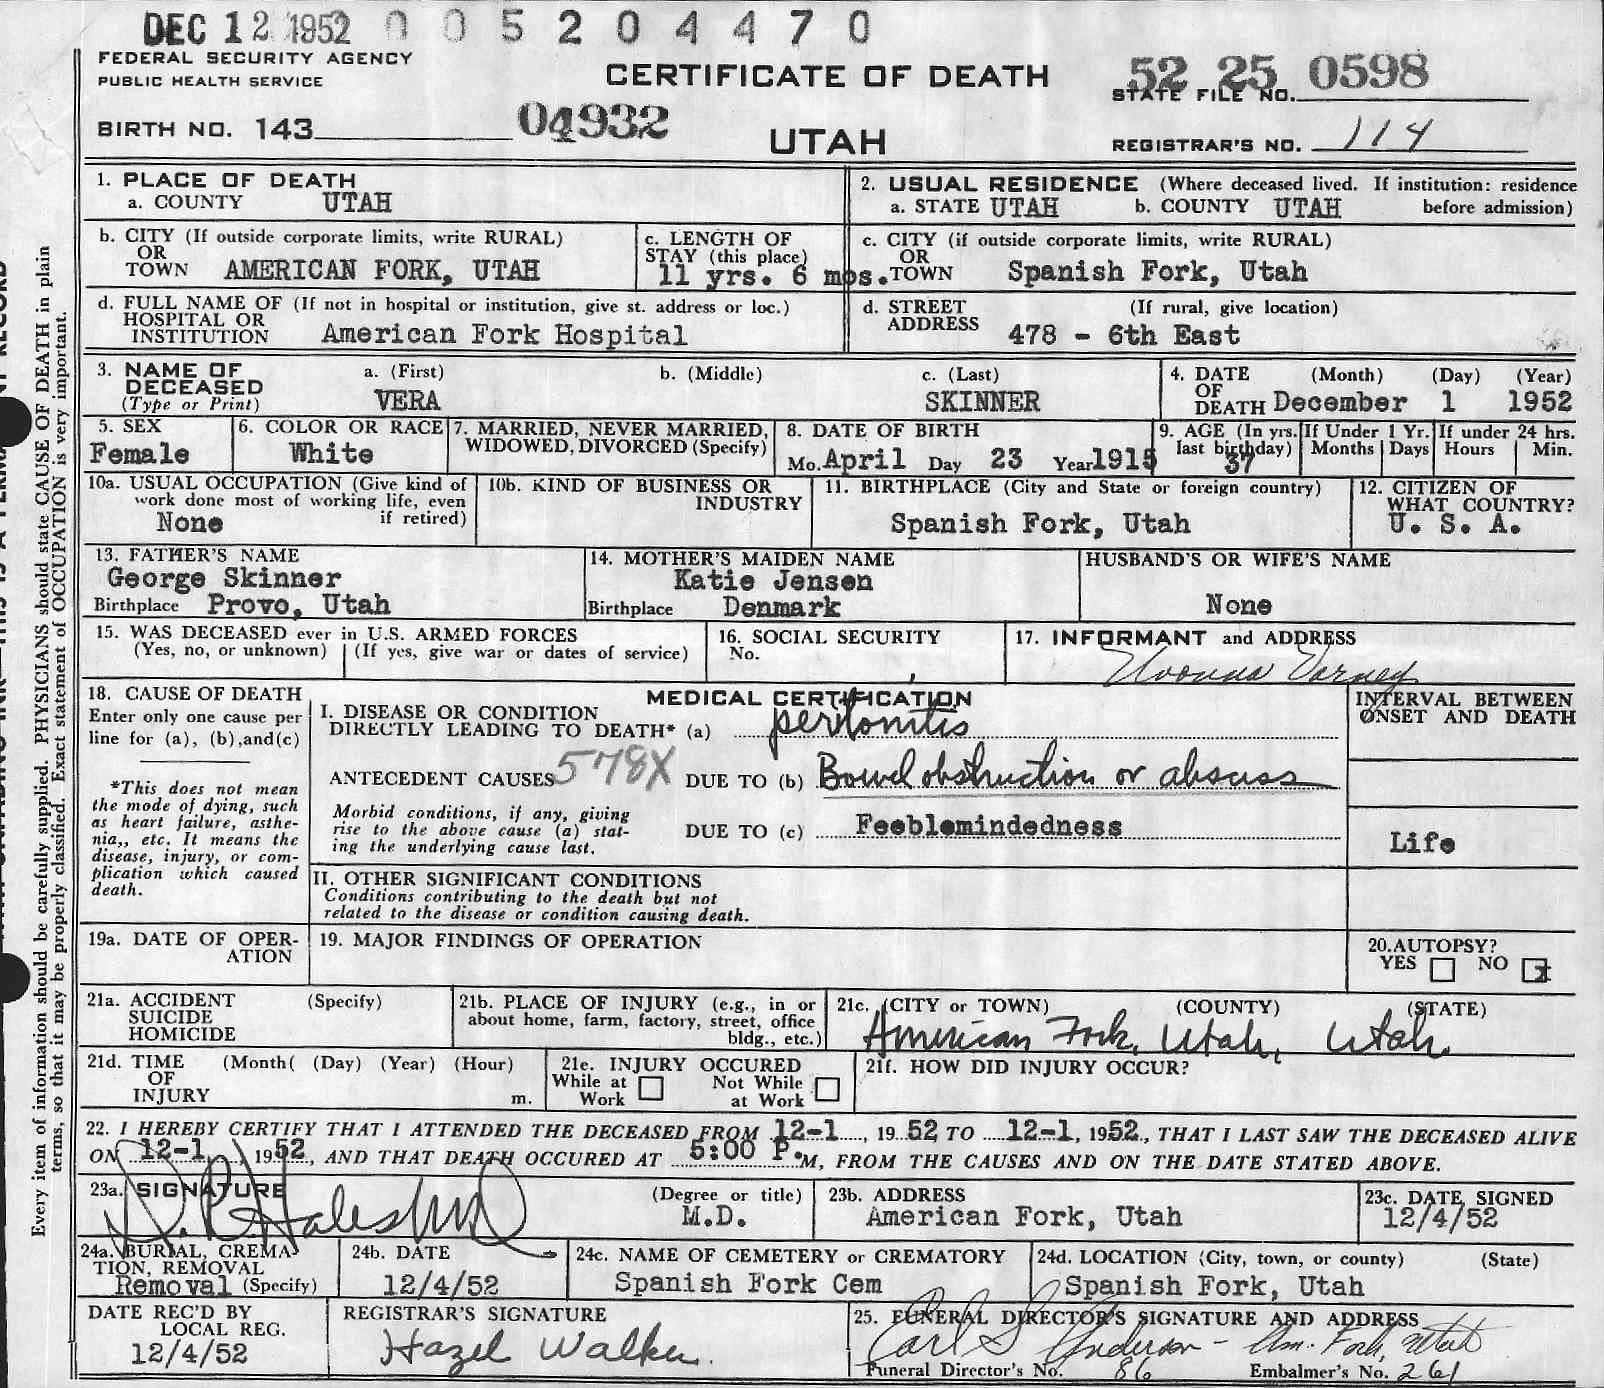 DEC 12 1952 0 0 5 2 0 4 4 7 0
FEDERAL SECURITY AGENCY
PUBLIC HEALTH SERVICE
CERTIFICATE OF DEATH
52 25 0598
STATE FILE NO.
BIRTH NO. 143
04932
UTAH
REGISTRAR'S NO. 114
1. PLACE OF DEATH
a. COUNTY UTAH
2. USUAL RESIDENCE (Where deceased lived. If institution: residence
a. STATE UTAH b. COUNTY UTAH before admission)
b. CITY (If outside corporate limits, write RURAL)
OR
TOWN AMERICAN FORK, UTAH
c. LENGTH OF
STAY (this place)
11 yrs. 6 mos.
c. CITY (if outside corporate limits, write RURAL)
OR
TOWN Spanish Fork, Utah
d. FULL NAME OF (If not in hospital or institution, give st. address or loc.)
HOSPITAL OR
INSTITUTION American Fork Hospital
d. STREET (If rural, give location)
ADDRESS 478 - 6th East
3. NAME OF
DECEASED
(Type or Print)
a. (First) b. (Middle) c. (Last)
VERA SKINNER
4. DATE (Month) (Day) (Year)
OF
DEATH December 1 1952
5. SEX
Female
6. COLOR OR RACE
White
7. MARRIED, NEVER MARRIED,
WIDOWED, DIVORCED (Specify)
8. DATE OF BIRTH
Mo. April Day 23 Year 1915
9. AGE (In yrs.
last birthday)
37
If Under 1 Yr.
Months Days
If under 24 hrs.
Hours Min.
10a. USUAL OCCUPATION (Give kind of
work done most of working life, even
if retired)
None
10b. KIND OF BUSINESS OR
INDUSTRY
11. BIRTHPLACE (City and State or foreign country)
Spanish Fork, Utah
12. CITIZEN OF
WHAT COUNTRY?
U. S. A.
13. FATHER'S NAME
George Skinner
Birthplace Provo, Utah
14. MOTHER'S MAIDEN NAME
Katie Jensen
Birthplace Denmark
HUSBAND'S OR WIFE'S NAME
None
15. WAS DECEASED ever in U.S. ARMED FORCES
(Yes, no, or unknown) (If yes, give war or dates of service)
16. SOCIAL SECURITY
No.
17. INFORMANT and ADDRESS
Varney
18. CAUSE OF DEATH
Enter only one cause per
line for (a), (b),and(c)
*This does not mean
the mode of dying, such
as heart failure, asthe-
nia,, etc. It means the
disease, injury, or com-
plication which caused
death.
MEDICAL CERTIFICATION
I. DISEASE OR CONDITION
DIRECTLY LEADING TO DEATH* (a) peritonitis
ANTECEDENT CAUSES 578X DUE TO (b) Bowel obstruction or abscess
Morbid conditions, if any, giving
rise to the above cause (a) stat-
ing the underlying cause last.
DUE TO (c) Feeblemindedness
INTERVAL BETWEEN
ONSET AND DEATH
Life
II. OTHER SIGNIFICANT CONDITIONS
Conditions contributing to the death but not
related to the disease or condition causing death.
19a. DATE OF OPER-
ATION
19. MAJOR FINDINGS OF OPERATION
20. AUTOPSY?
YES NO x
21a. ACCIDENT (Specify)
SUICIDE
HOMICIDE
21b. PLACE OF INJURY (e.g., in or
about home, farm, factory, street, office
bldg., etc.)
21c. (CITY or TOWN) (COUNTY) (STATE)
American Fork, Utah, Utah
21d. TIME (Month( (Day) (Year) (Hour)
OF
INJURY m.
21e. INJURY OCCURED
While at Not While
Work at Work
21f. HOW DID INJURY OCCUR?
22. I HEREBY CERTIFY THAT I ATTENDED THE DECEASED FROM 12-1, 19 52 TO 12-1, 1952, THAT I LAST SAW THE DECEASED ALIVE
ON 12-1, 1952, AND THAT DEATH OCCURED AT 5:00 P.M, FROM THE CAUSES AND ON THE DATE STATED ABOVE.
23a. SIGNATURE (Degree or title)
M.D.
23b. ADDRESS
American Fork, Utah
23c. DATE SIGNED
12/4/52
24a. BURIAL, CREMA-
TION, REMOVAL
Removal (Specify)
24b. DATE
12/4/52
24c. NAME OF CEMETERY or CREMATORY
Spanish Fork Cem
24d. LOCATION (City, town, or county) (State)
Spanish Fork, Utah
DATE REC'D BY
LOCAL REG.
12/4/52
REGISTRAR'S SIGNATURE
Hazel Walker
25. FUNERAL DIRECTOR'S SIGNATURE AND ADDRESS
Carl S Anderson - Am. Fork, Utah
Funeral Director's No. 86 Embalmer's No. 261
Every item of information should be carefully supplied. PHYSICIANS should state CAUSE OF DEATH in plain
terms, so that it may be properly classified. Exact statement of OCCUPATION is very important.